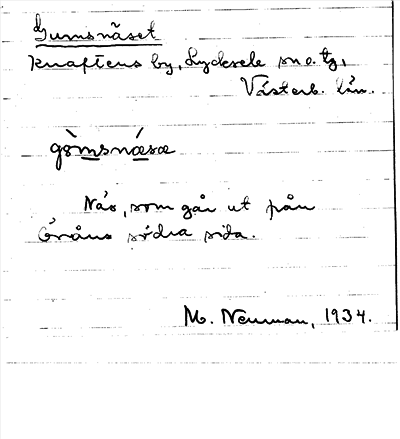 Gumsnäset
Knaftens by, Lycksele sn o. tg,
Västerb. län.
gòmsnǽsæ
Näs, som går ut från
Öråns södra sida.
M. Neuman, 1934.